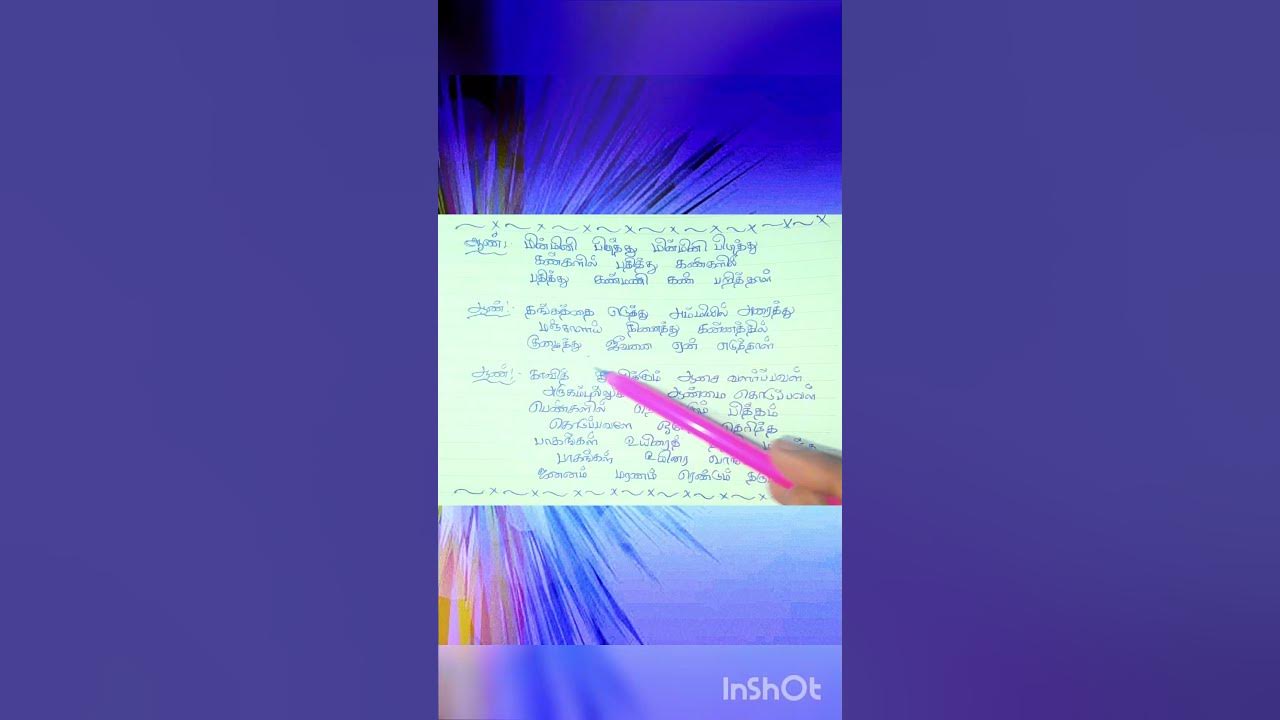 ஆண்:- மின்மினி பிடித்து மின்மினி பிடித்து
கண்களில் பதித்து கண்களில்
பதித்து கண்மணி கண் பறித்தாள்
ஆண்:- தங்கத்தை எடுத்து அம்மியில் அரைத்து
மஞ்சளாய் நினைத்து கன்னத்தில்
குழைத்து ஜீவனை ஏன் எடுத்தாள்
ஆண்:- காவித் ஆசை வளர்ப்பவள்
ஆண்மை கொடுப்பவள்
பெண்களில் பித்தம்
கொடுப்பவளே தெரிந்த
பாகங்கள் உயிரைத்
பாகங்கள் உயிரை
ஜனனம் மரணம் ரெண்டும்
InShOt